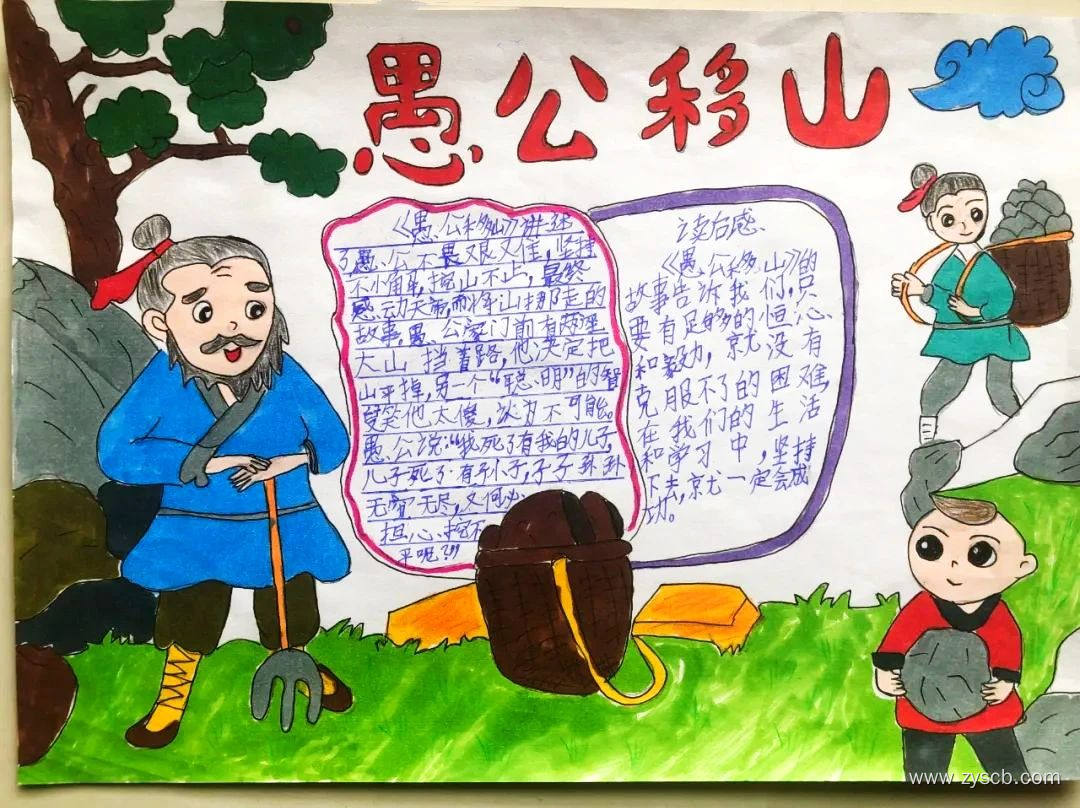 愚公移山
《愚公移山》讲述
了愚公不畏艰难,坚持
不懈,挖山不止,最终
感动天帝而将山挪走的
故事。愚公家门前有两座
大山挡着路,他决定把
山平掉,另一个“聪明”的智
叟笑他太傻,认为不可能。
愚公说:“我死了有我的儿子,
儿子死了有孙子,子子孙孙
无穷无尽,又何必
担心挖不
平呢?”
读后感
《愚公移山》的
故事告诉我们,只
要有足够的恒心
和毅力,就没有
克服不了的困难,
在我们的生活
和学习中,坚持
下去,就一定会成
功。
www.zyscb.com